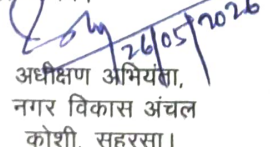 26/05/2026
अधीक्षण अभियंता,
नगर विकास अंचल
कोशी, सहरसा।